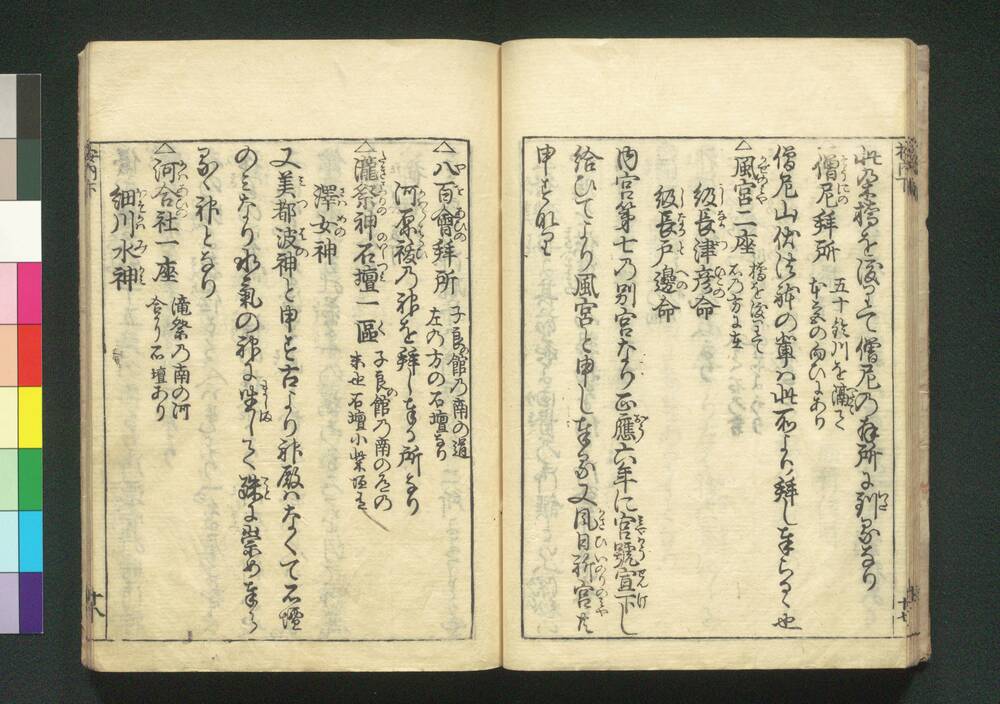 此乃木橋を渡りて僧尼の拝所に到るなり
僧尼拝所 五十鈴川を隔て
本宮の向ひにあり
僧尼山伏法躰の輩ハ此所より拝し奉らるゝ也
△風宮二座 橋を渡りて
右の方に在
級長津彦命
級長戸邊命
内宮第七の別宮なり正應六年に官號宣下し
給ひてより風宮と申し奉る又風日祈宮共
申すなり
△八百會拜所 子良館乃南の道
左の方の石壇なり
河原祓乃神を拜し奉る所なり
△瀧祭神石壇一區 子良館乃南の
石壇小柴垣
澤女神
又美都波神と申す古より神殿ハなくて石壇
のミなり水氣の神に坐して殊に崇め奉ら
るゝ神となり
△河合社一座 滝祭乃南の河
合より石壇あり
細川水神
十七
十八